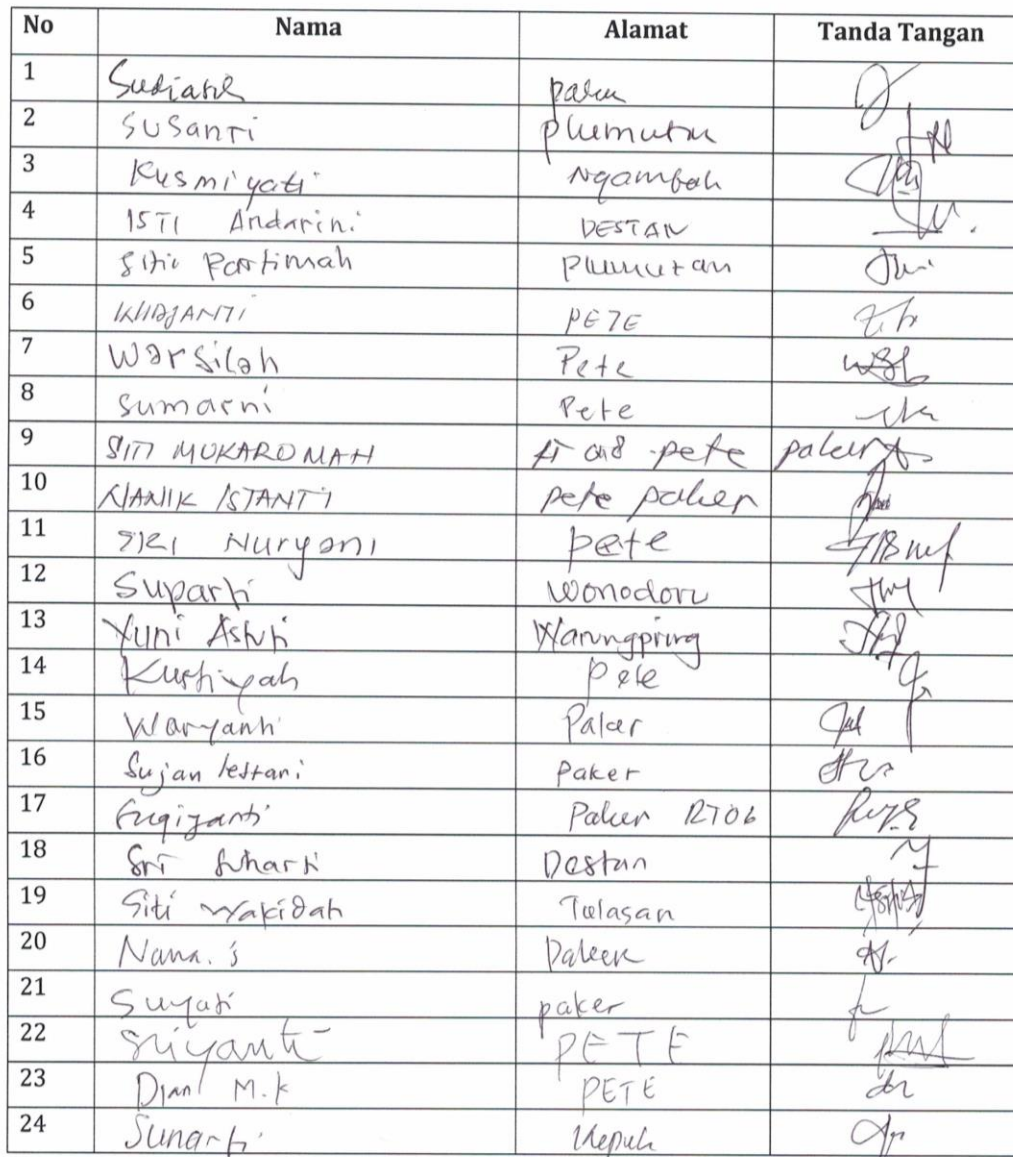 No Nama Alamat Tanda Tangan
1 Sudiasih paker
2 SUSANTI plumutan
3 Kusmiyati Ngambah
4 ISTI Andarini DESTAN
5 Siti Partimah Plumutan
6 KHOJANTI PETE
7 Warsilah Pete
8 Sumarni Pete
9 SITI MUKAROMAH pete paker
10 NANIK ISTANTI pete paker
11 SRI Nuryani pete
12 Suparti Wonodoro
13 Yuni Astuti Warungpring
14 Kurtiyah pete
15 Waryanti Paker
16 Sujan lestari Paker
17 Sugiyanti Paker RT06
18 Sri Suharti Destan
19 Siti Wakidah Tulasan
20 Nana. S Paker
21 Suyati paker
22 Sriyanti PETE
23 Dian M.K PETE
24 Sunarti Kepuh